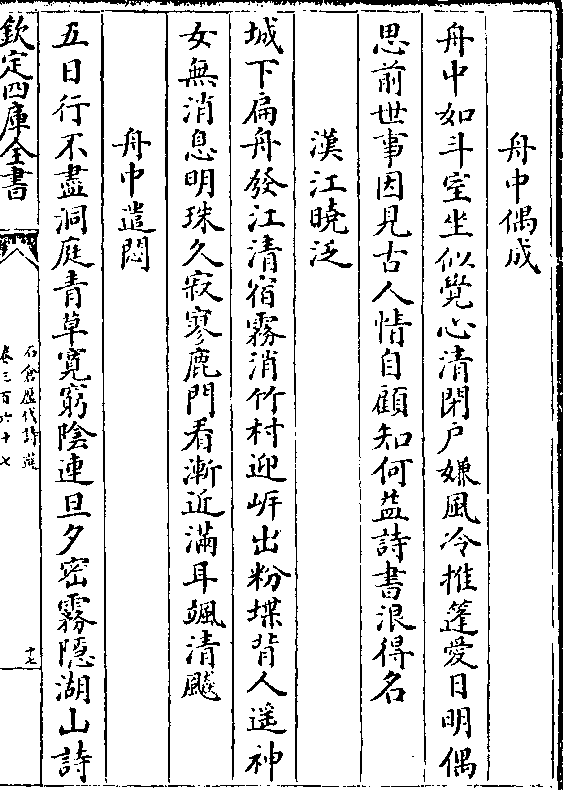 舟中偶成
舟中如斗室坐似覺心清閉户嫌風冷推篷愛日明偶
思前世事因見古人情自顧知何益詩書浪得名
漢江曉泛
城下扁舟發江清宿霧消竹村迎岍出粉堞背人遥神
女無消息明珠久寂寥鹿門看漸近滿耳颯清飈
舟中遣悶
五日行不盡洞庭青草寛窮陰連旦夕密霧隠湖山詩
欽定四庫全書
石倉歴代詩選
卷三百六十七
十七